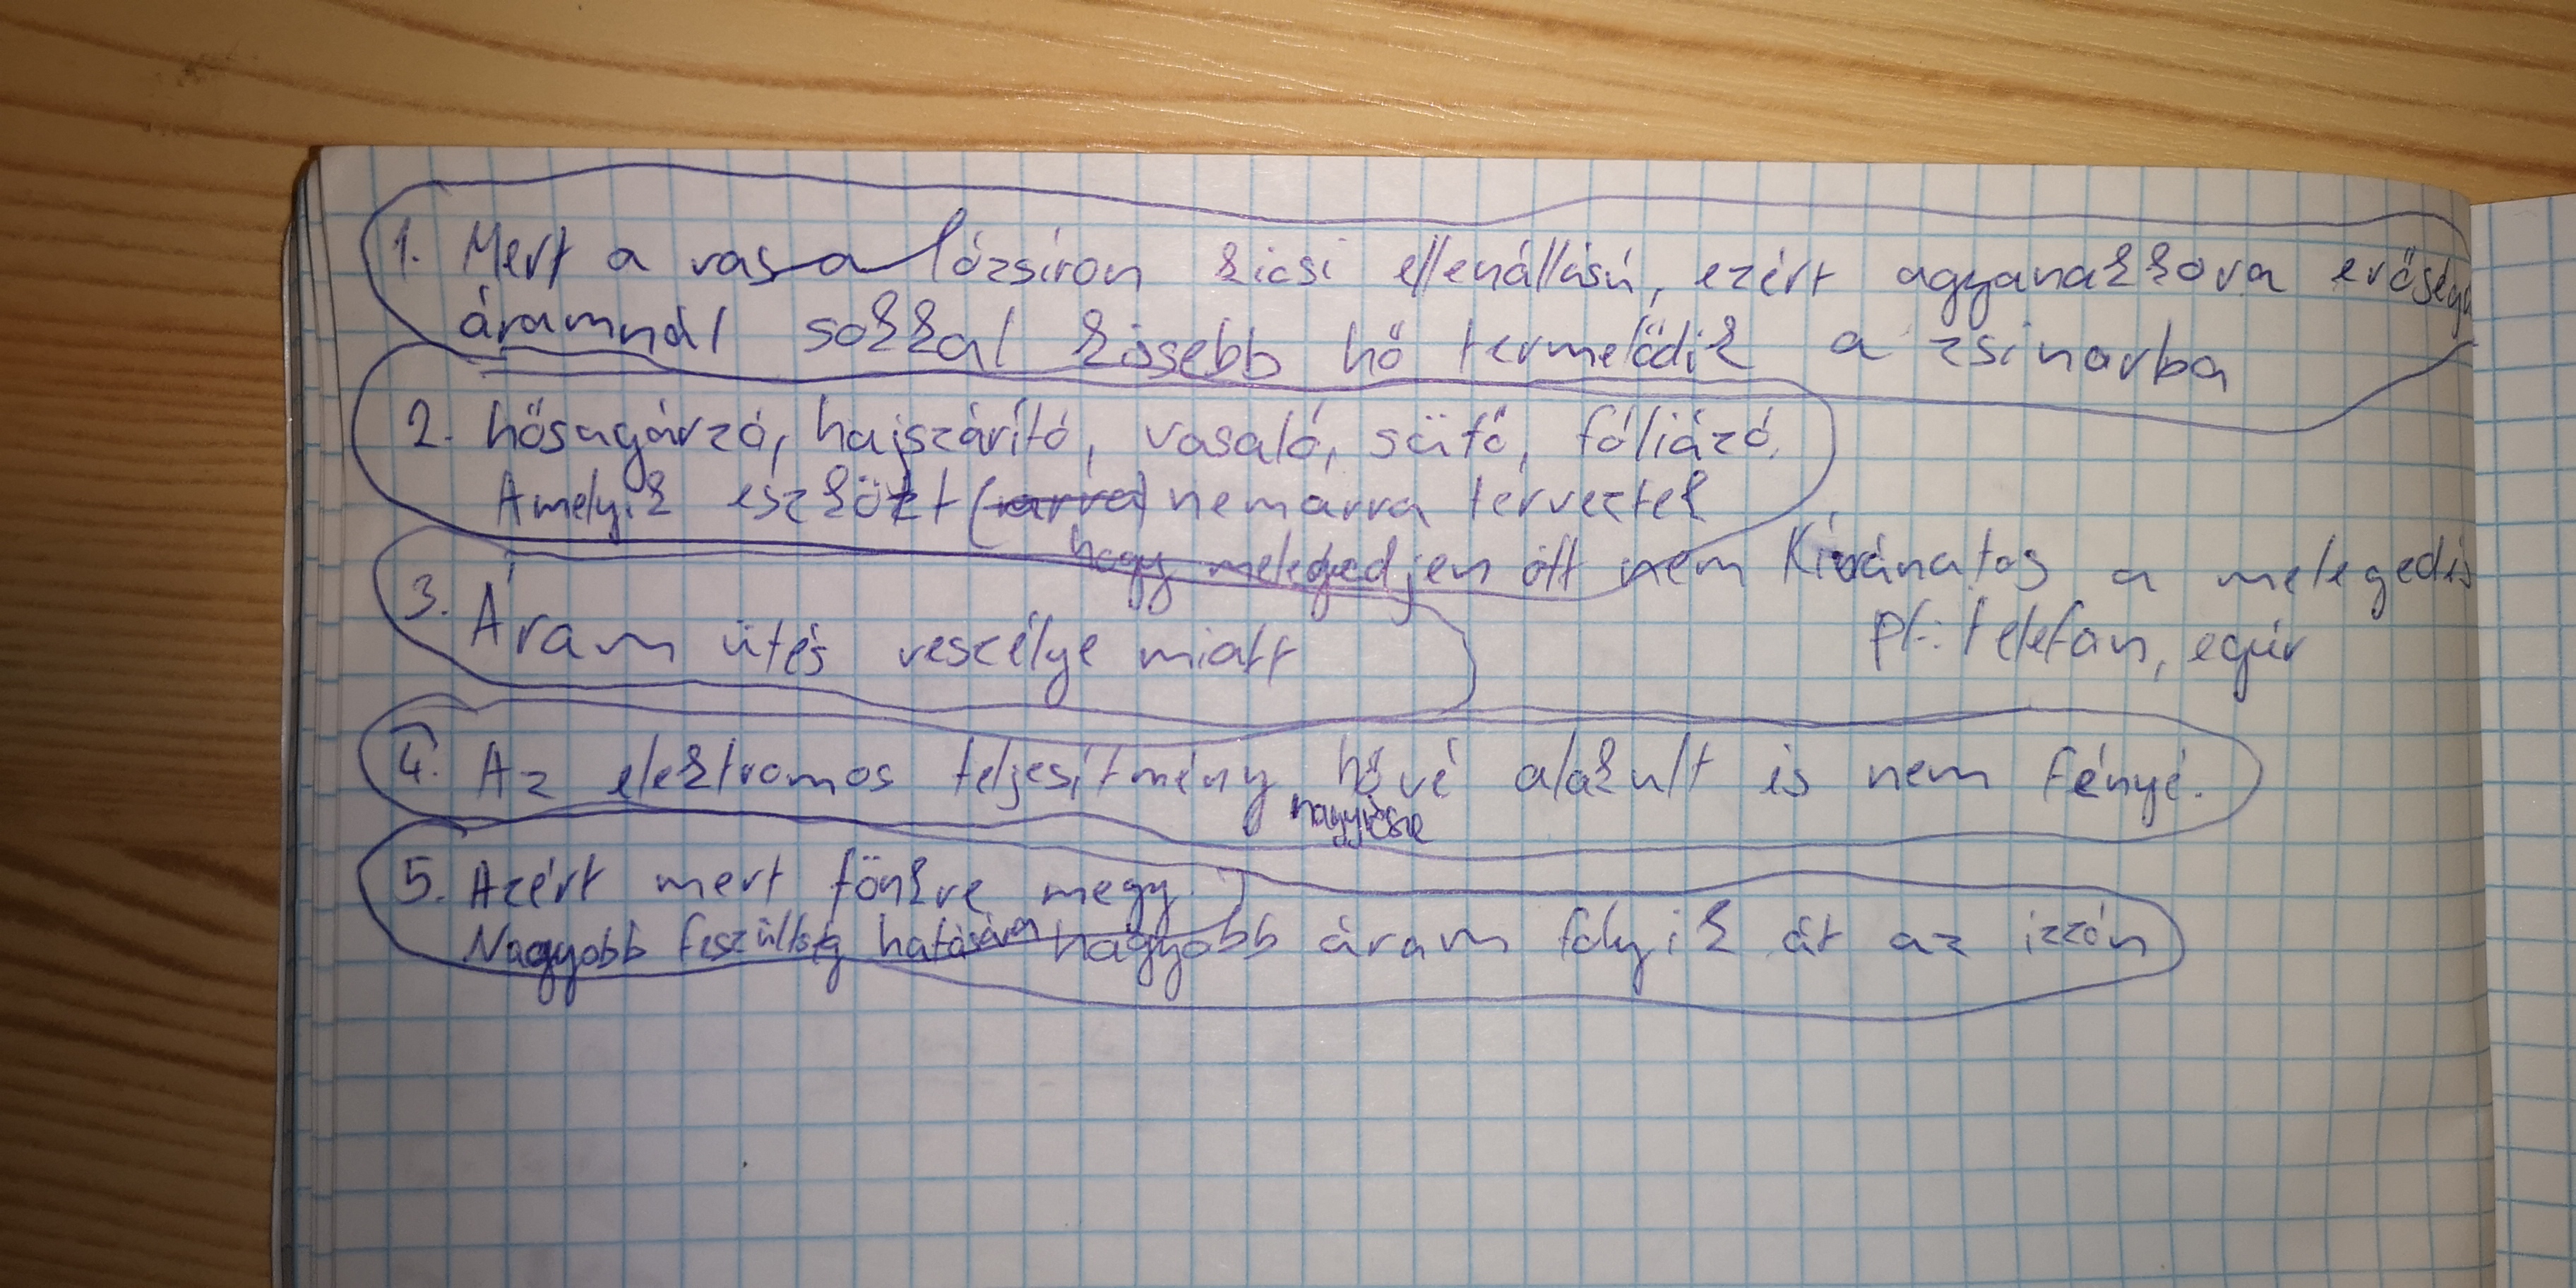 1. Mert a vasalózsiron kicsi ellenállású, ezért agyanakkora erőségű
áramnál sokkal kissebb hő termelődik a zsinorba
2. hősugárzó, hajszárító, vasaló, sütő, fóliázó.
Amelyik eszközt (arra) nem arra terveztek
hogy melegedjen ott nem Kívánatos a melegedés
pl.: telefon, egér
3. Áram ütés veszélye miatt
4. Az elektromos teljesítmény hővé alakult is nem fényé.
nagyrésze
5. Azért mert fönkre megy.
Nagyobb feszültség hatására nagyobb áram folyik át az izzón